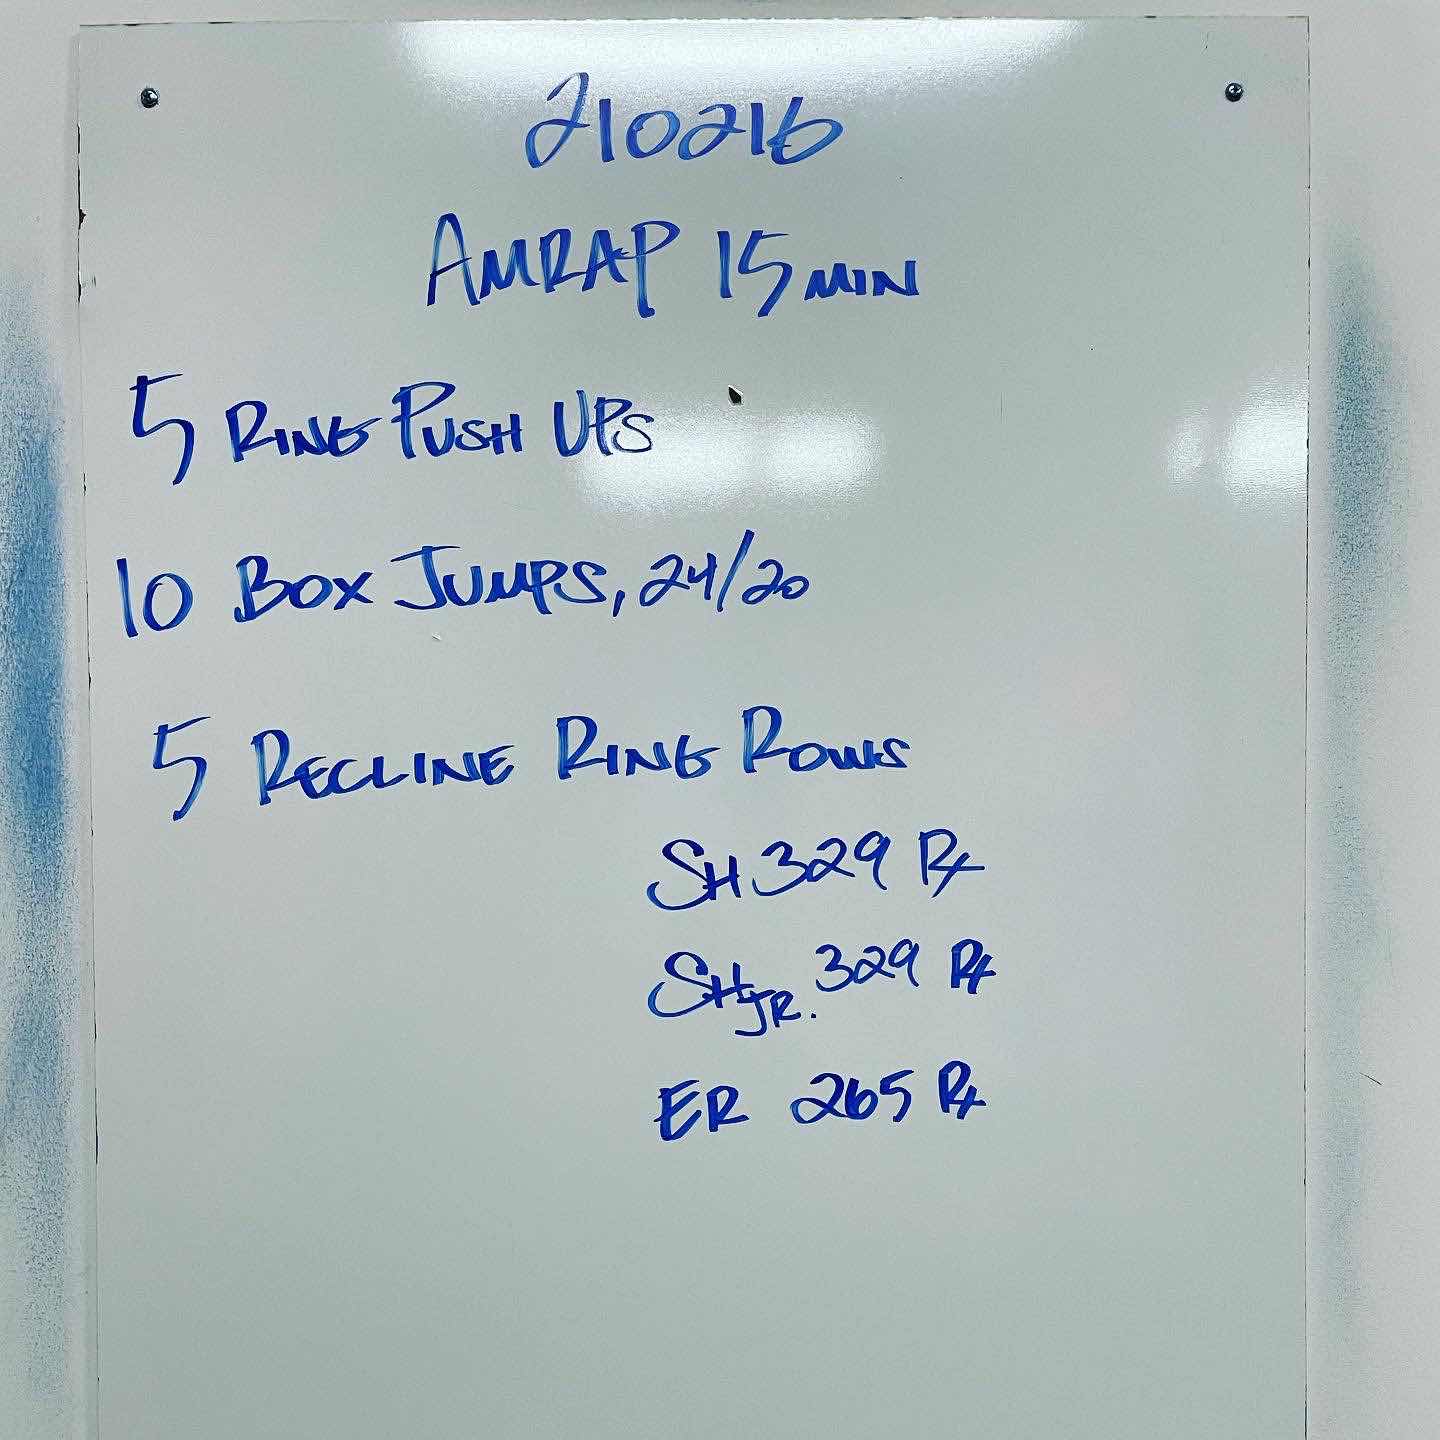 210216
AMRAP 15 MIN
5 RING PUSH UPS
10 BOX JUMPS, 24/20
5 RECLINE RING ROWS
SH 329 Rx
SH JR. 329 Rx
ER 265 Rx